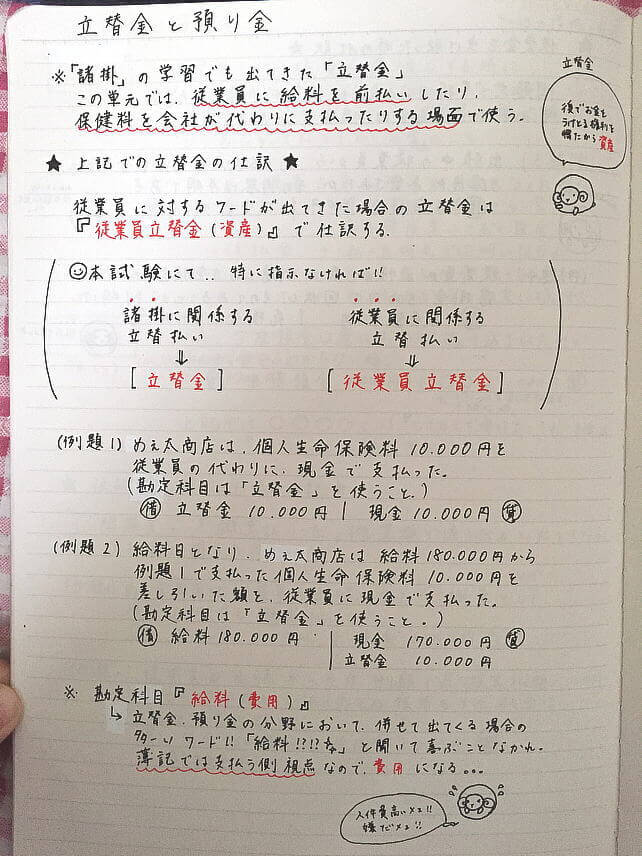 立替金と預り金
※「諸掛」の学習でも出てきた「立替金」
この単元では、従業員に給料を前払いしたり、
保健料を会社が代わりに支払ったりする場面で使う。
立替金
後でお金を
うけとる権利を
得たから資産
★ 上記での立替金の仕訳 ★
従業員に対するワードが出てきた場合の立替金は
『従業員立替金(資産)』で仕訳する.
本試験にて.. 特に指示なければ!!
諸掛に関係する
立替払い
⇓
[立替金]
従業員に関係する
立替払い
⇓
[従業員立替金]
(例題1) めぇ太商店は、個人生命保険料 10.000円を
従業員の代わりに、現金で支払った。
(勘定科目は「立替金」を使うこと.)
借 立替金 10.000円 | 現金 10.000円 貸
(例題2) 給料日となり、めぇ太商店は 給料180.000円から
例題1で支払った個人生命保険料 10.000円を
差し引いた額を、従業員に現金で支払った。
(勘定科目は「立替金」を使うこと。)
借 給料 180.000円 | 現金 170.000円 貸
立替金 10.000円
※ 勘定科目『給料(費用)』
↳ 立替金、預り金の分野において、併せて出てくる場合の
多い ワード!!「給料!?!?」と聞いて喜ぶことなかれ.
簿記では支払う側視点なので、費用になる。。。
人件費高いメェ!!
嫌だメェ!!